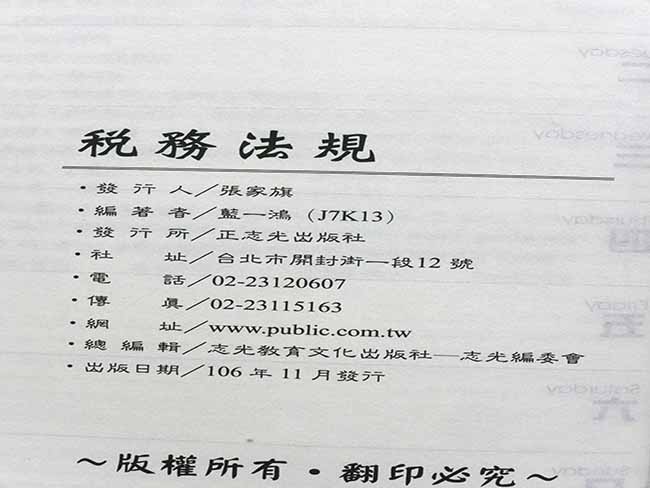 稅務法規
・發行人／張家旗
・編著者／藍一鴻（J7K13）
・發行所／正志光出版社
・社址／台北市開封街一段12號
・電話／02-23120607
・傳真／02-23115163
・網址／www.public.com.tw
・總編輯／志光教育文化出版社—志光編委會
・出版日期／106年11月發行
～版權所有・翻印必究～